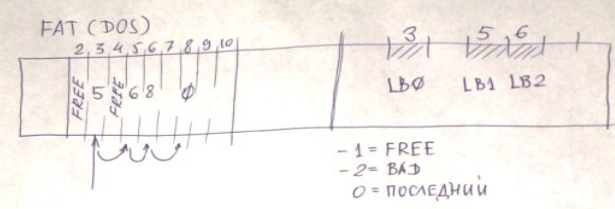 FAT (DOS)
2 3 4 5 6 7 8 9 10
FREE 5 FREE 6 8 0
3 5 6
LB0 LB1 LB2
-1 = FREE
-2 = BAD
0 = ПОСЛЕДНИЙ